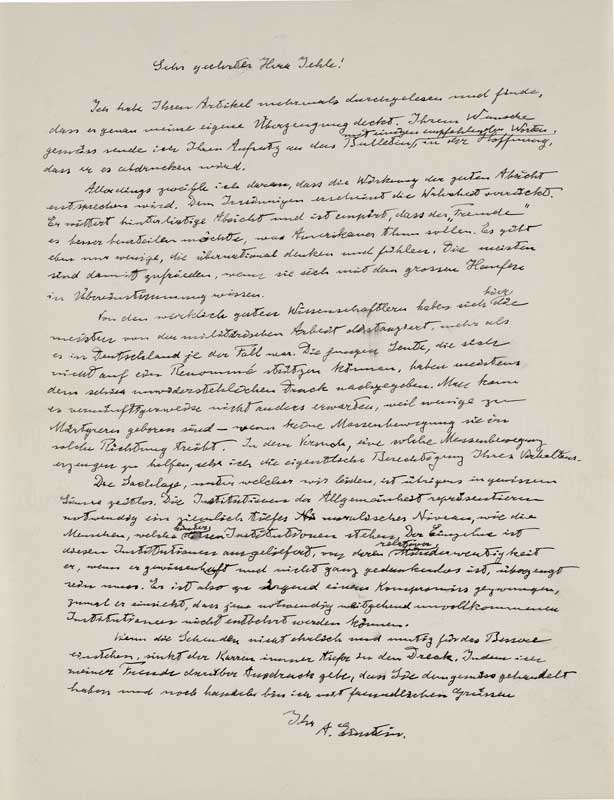 Sehr geehrter Herr Jehle!
Ich habe Ihren Artikel mehrmals durchgelesen und finde,
dass er genau meine eigene Überzeugung deckt. Ihrem Wunsche
mit einigen empfehlenden Worten,
gemäss sende ich Ihren Aufsatz an das Bulletin, in der Hoffnung,
dass er es abdrucken wird.
Allerdings zweifle ich daran, dass die Wirkung der guten Absicht
entsprechen wird. Den Irrsinnigen erscheint die Wahrheit verrückt.
Er wittert hinterlistige Absicht und ist empört, dass der „Fremde"
es besser beurteilen möchte, was Amerikaner thun sollen. Es gibt
eben nur wenige, die übernational denken und fühlen. Die meisten
sind damit zufrieden, wenn sie sich mit dem grossen Haufen
in Übereinstimmung wissen.
hier
Von den wirklich guten Wissenschaftlern haben sich die
meisten von der militärischen Arbeit distanziert, mehr als
es in Deutschland je der Fall war. Die jungen Leute, die sich
nicht auf ein Renommé stützen können, haben meistens
dem schier unwiderstehlichen Druck nachgegeben. Man kann
es vernünftigerweise nicht anders erwarten, weil wenige zu
Märtyrern geboren sind – wenn keine Massenbewegung sie in
solche Richtung treibt. In dem Versuch, eine solche Massenbewegung
erzeugen zu helfen, sehe ich die eigentliche Berechtigung Ihres Verhaltens.
Die Sachlage, unter welcher wir leiden, ist übrigens in gewissem
Sinne zeitlos. Die Institutionen der Allgemeinheit repräsentieren
notwendig ein ziemlich tiefes moralisches Niveau, wie die
hinter
Menschen, welche Institutionen stehen. Der Einzelne ist
relativer
diesen Institutionen ausgeliefert, von deren Minderwertigkeit
er, wenn er gewissenhaft und nicht ganz gedankenlos ist, überzeugt
sein muss. Er ist also zu irgend einem Kompromiss gezwungen,
zumal er einsieht, dass jene notwendig weitgehend unvollkommenen
Institutionen nicht entbehrt werden können.
Wenn die Sehenden nicht ehrlich und mutig für das Bessere
einstehen, sinkt der Karren immer tiefer in den Dreck. Indem ich
meiner Freude darüber Ausdruck gebe, dass Sie demgemäss gehandelt
haben und noch handeln bin ich mit freundlichen Grüssen
Ihr
A. Einstein.